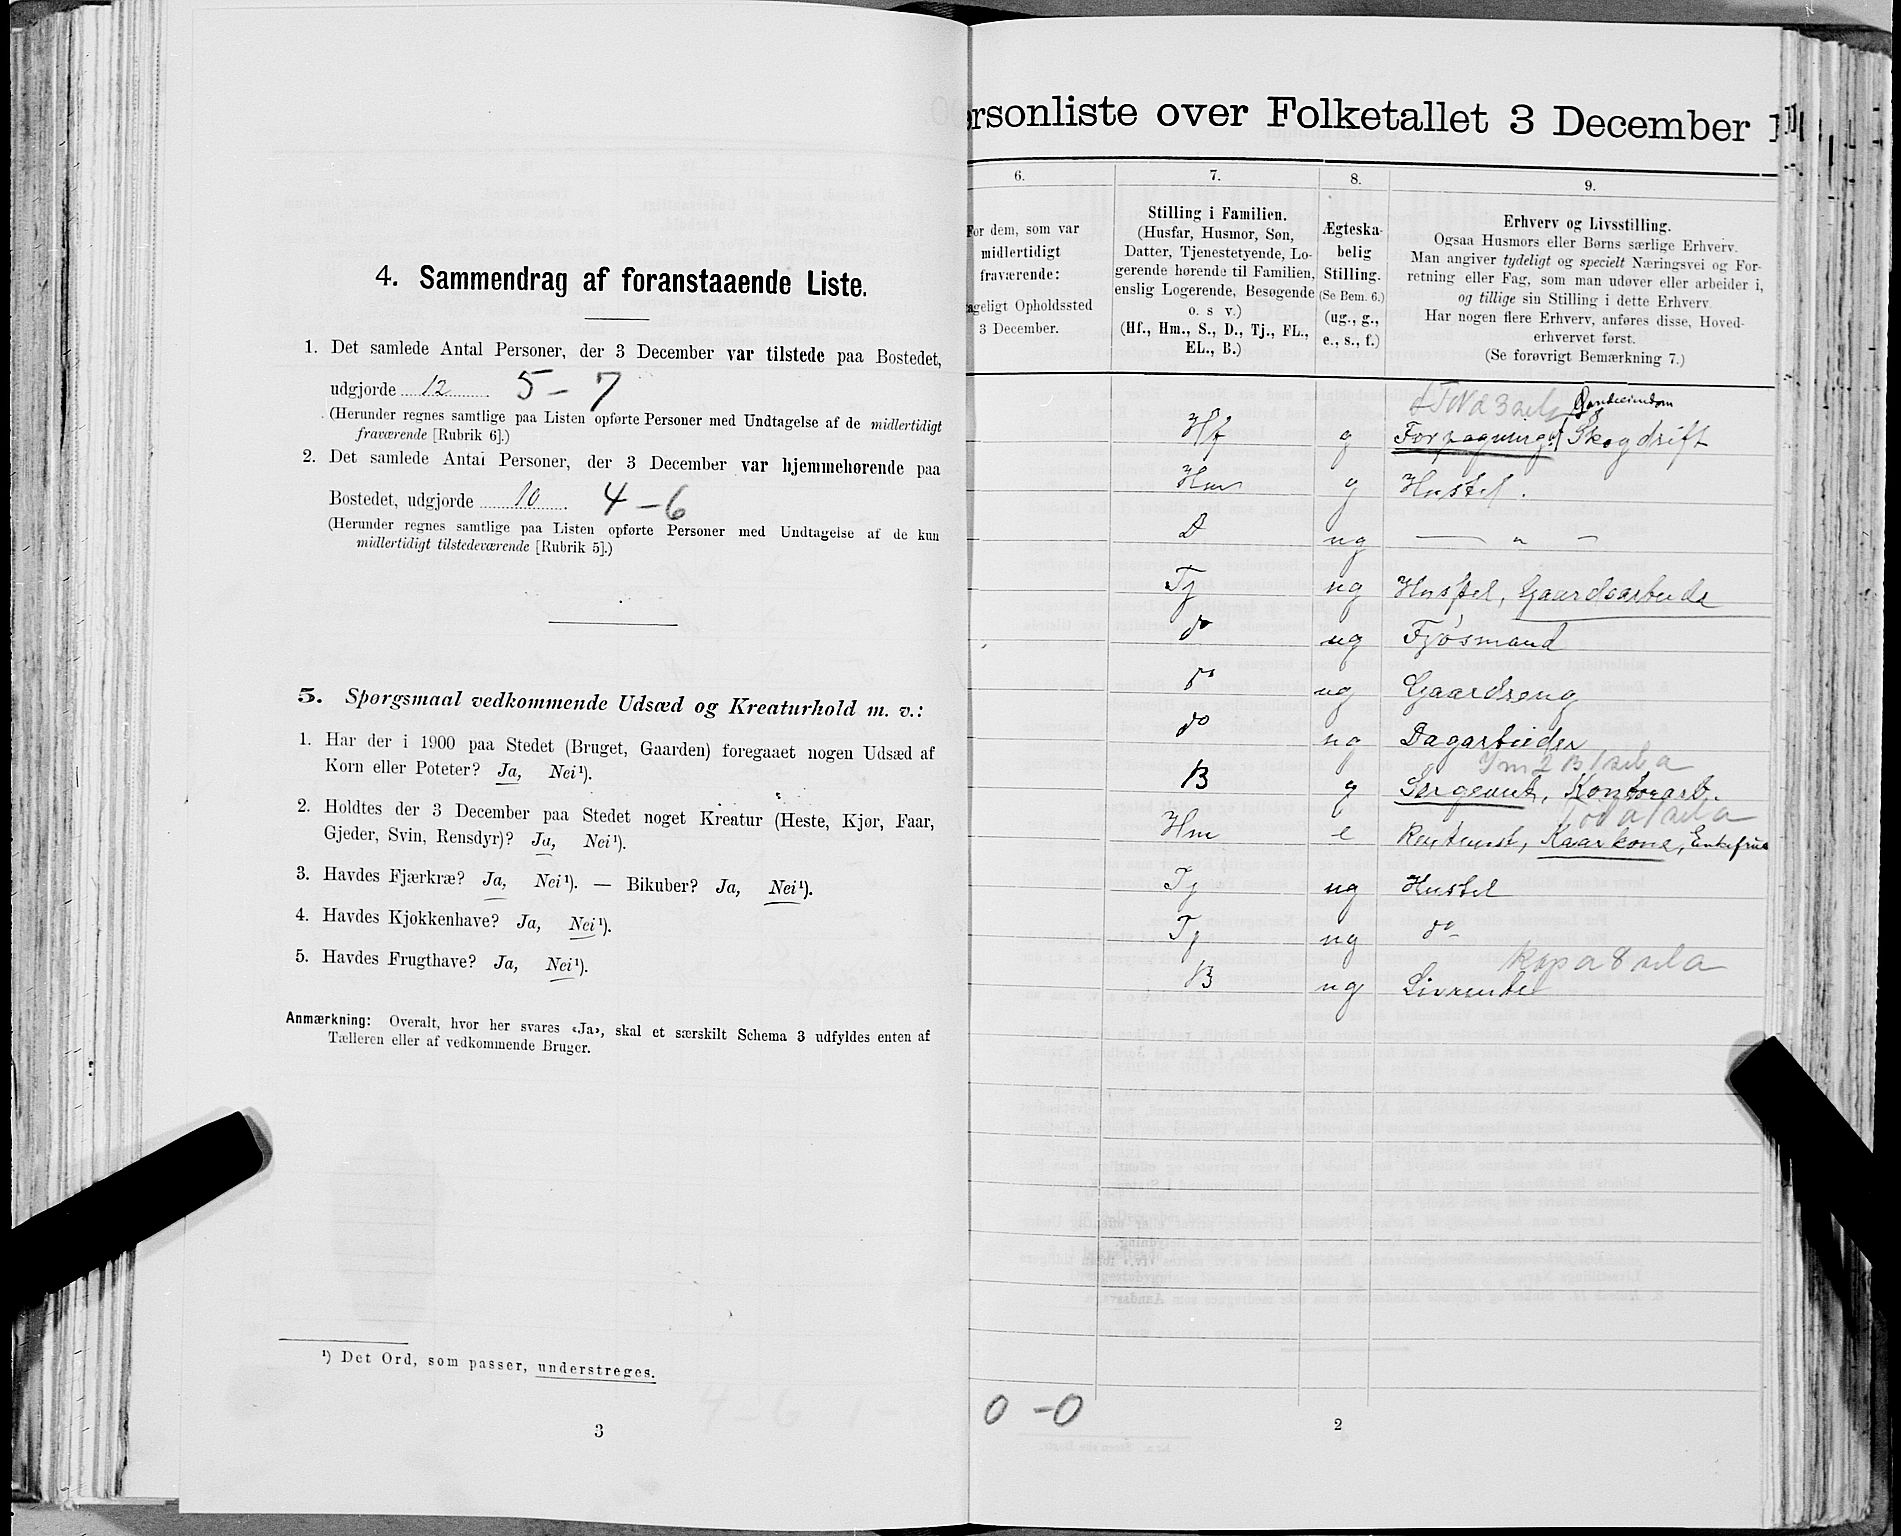 4. Sammendrag af foranstaaende Liste.
1. Det samlede Antal Personer, der 3 December var tilstede paa Bostedet,
udgjorde 12 5 - 7
(Herunder regnes samtlige paa Listen opførte Personer med Undtagelse af de midlertidigt
fraværende [Rubrik 6].)
2. Det samlede Antal Personer, der 3 December var hjemmehørende paa
Bostedet, udgjorde 10. 4 - 6
(Herunder regnes samtlige paa Listen opførte Personer med Undtagelse af de kun
midlertidigt tilstedeværende [Rubrik 5].)
5. Spørgsmaal vedkommende Udsæd og Kreaturhold m. v.:
1. Har der i 1900 paa Stedet (Bruget, Gaarden) foregaaet nogen Udsæd af
Korn eller Poteter? Ja, Nei¹).
2. Holdtes der 3 December paa Stedet noget Kreatur (Heste, Kjør, Faar,
Gjeder, Svin, Rensdyr)? Ja, Nei¹).
3. Havdes Fjærkræ? Ja, Nei¹). — Bikuber? Ja, Nei¹).
4. Havdes Kjøkkenhave? Ja, Nei¹).
5. Havdes Frugthave? Ja, Nei¹).
Anmærkning: Overalt, hvor her svares «Ja», skal et særskilt Schema 3 udfyldes enten af
Tælleren eller af vedkommende Bruger.
¹) Det Ord, som passer, understreges.
3
ersonliste over Folketallet 3 December 1
6. 7. 8. 9.
For dem, som var
midlertidigt
fraværende:
ageligt Opholdssted
3 December.
Stilling i Familien.
(Husfar, Husmor, Søn,
Datter, Tjenestetyende, Lo-
gerende hørende til Familien,
enslig Logerende, Besøgende
o. s v.)
(Hf., Hm., S., D., Tj., FL.,
EL., B.)
Ægteska-
belig
Stilling.
(Se Bem. 6.)
(ug., g.,
e., s., f.)
Erhverv og Livsstilling.
Ogsaa Husmors eller Børns særlige Erhverv.
Man angiver tydeligt og specielt Næringsvei og For-
retning eller Fag, som man udøver eller arbeider i,
og tillige sin Stilling i dette Erhverv.
Har nogen flere Erhverv, anføres disse, Hoved-
erhvervet først.
(Se forøvrigt Bemærkning 7.)
Hf g Skogdrift
Hm g Hustel.
D ug — " —
Tj ug Hustel, Gaardsarbeide
do ug Fjøsmand
do ug Gaardseng
do ug Dagarbeider
B g Sergeant, Kontorarb.
Hm e Kaarkone, Enkefrue
Tj ug Hustel
Tj ug do
B ug Livrente
0 - 0
2